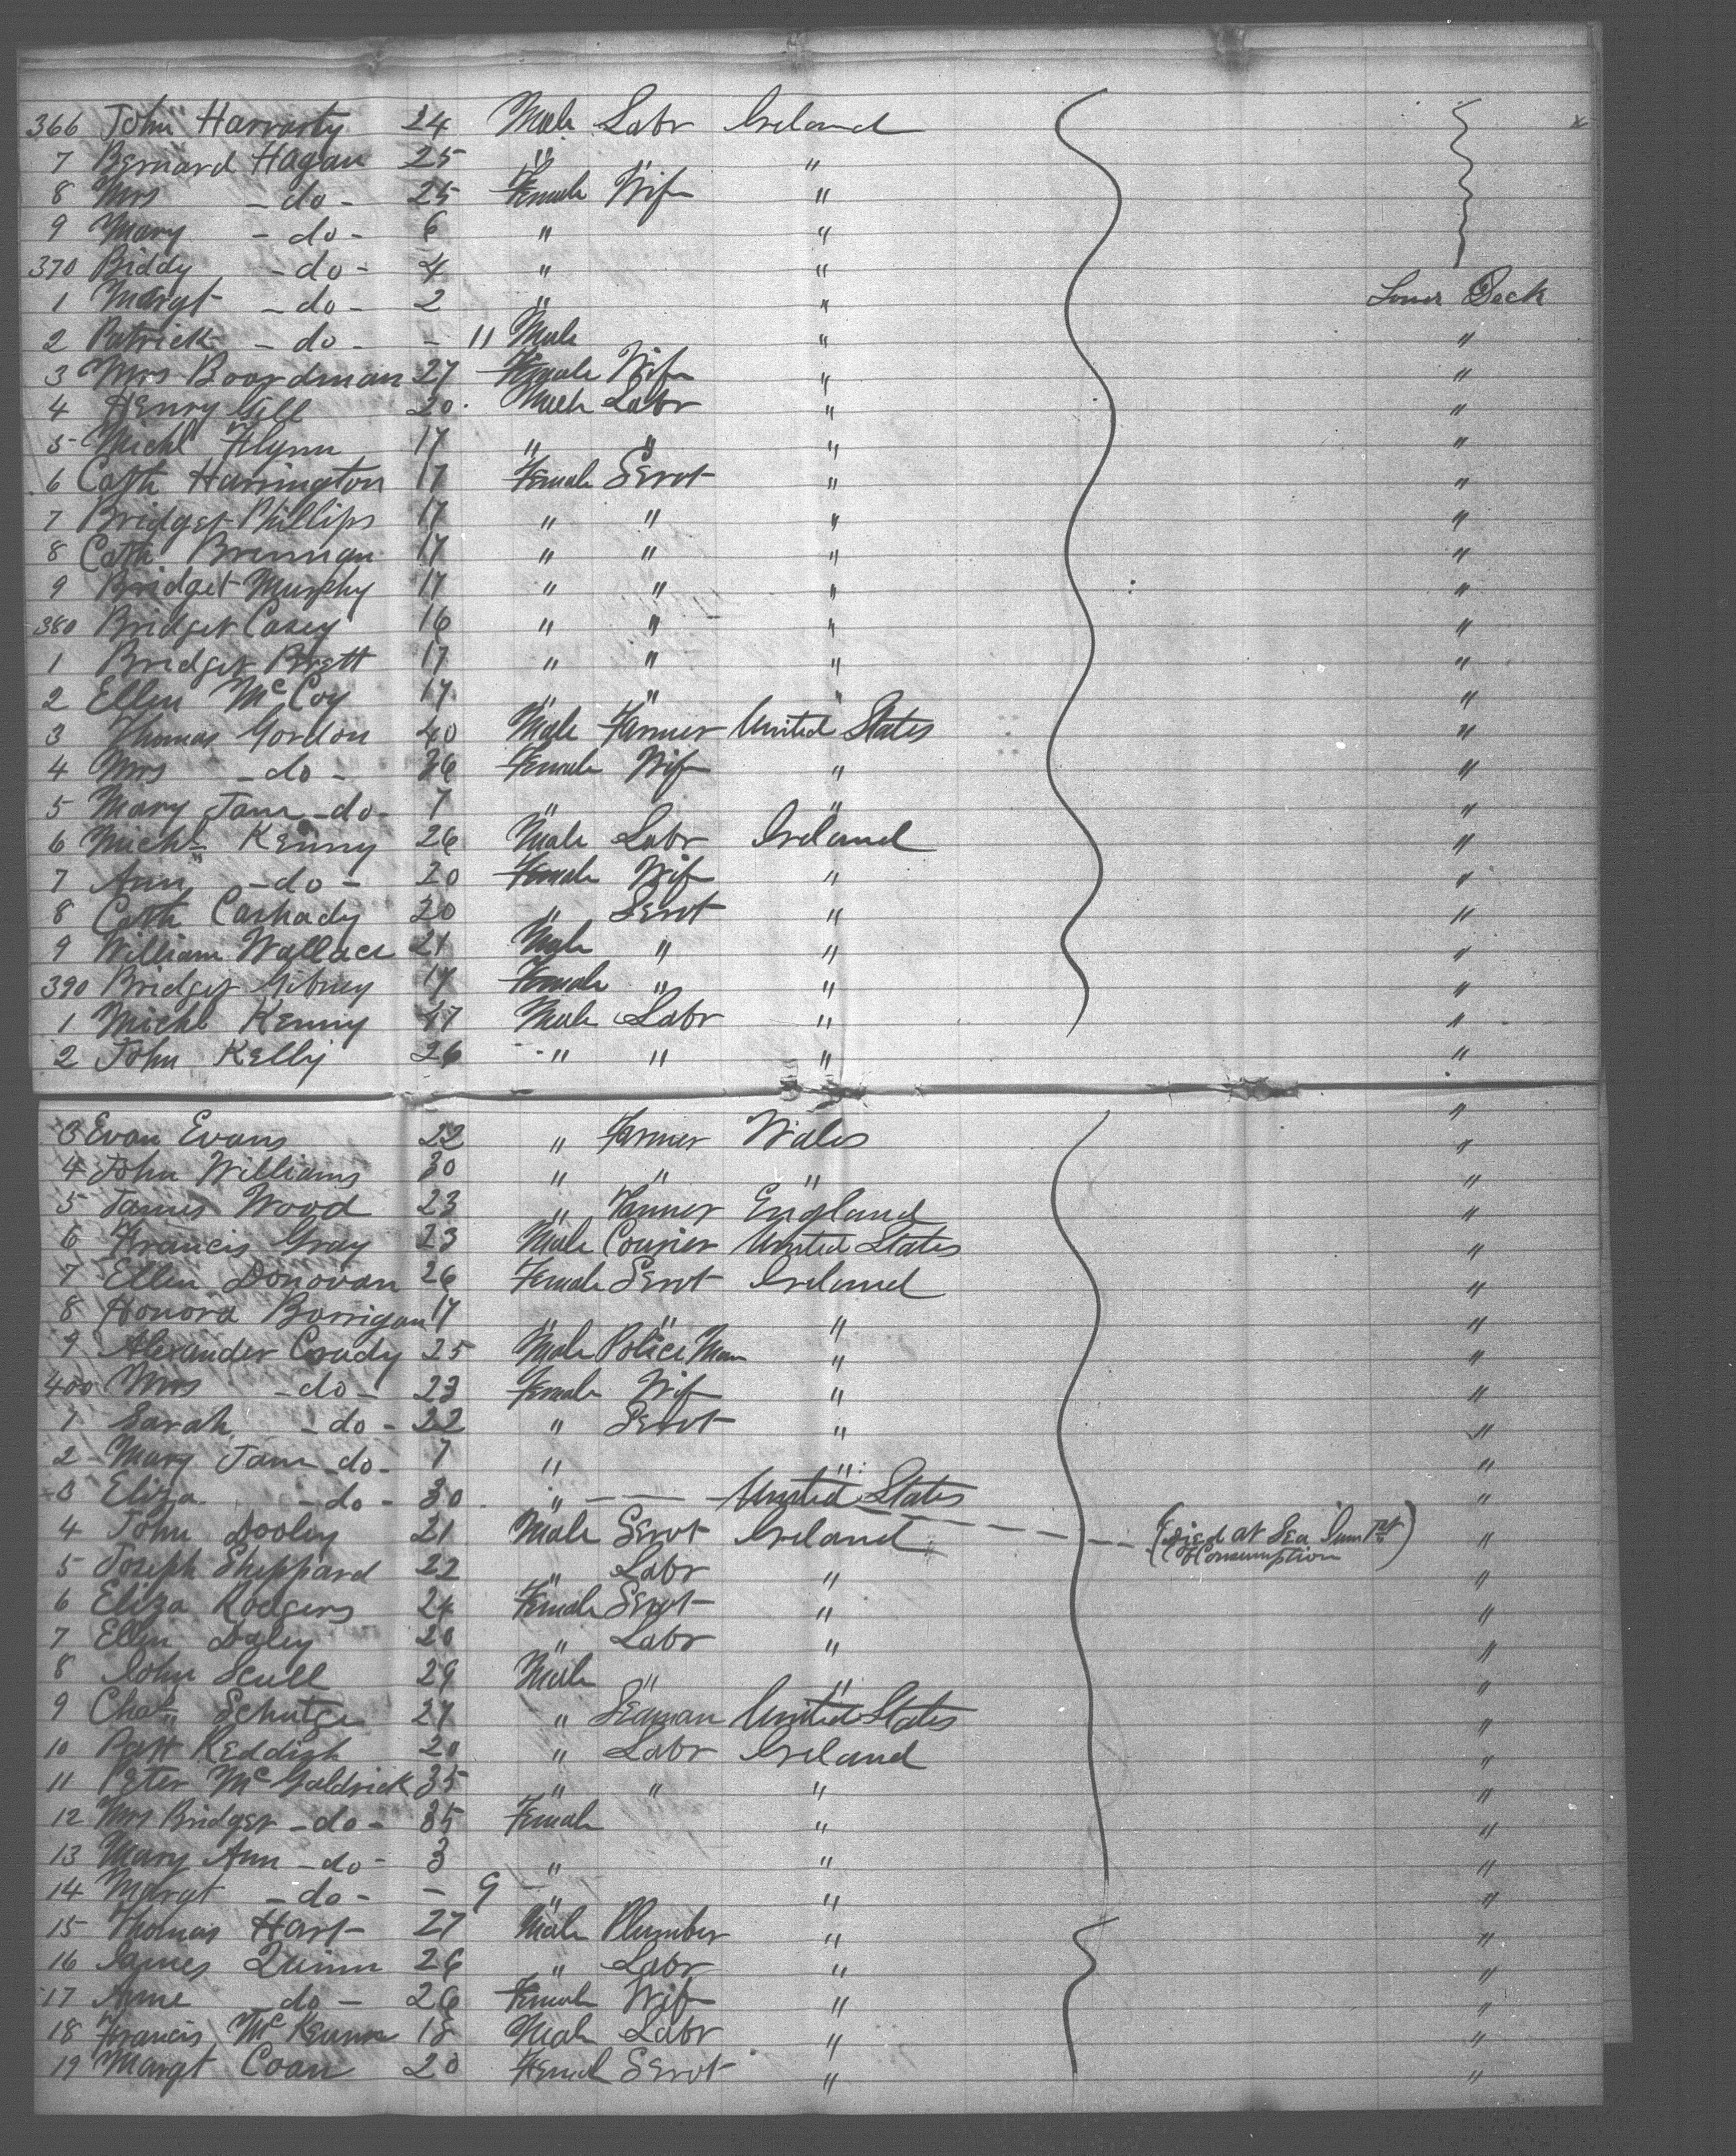 366 John Harrarty 24 Male Labr Ireland
7 Bernard Hagan 25 " " "
8 Mrs - do - 25 Female Wife "
9 Mary - do - 6 " "
370 Biddy - do - 4 " "
1 Margt - do - 2 " " Lower Deck
2 Patrick - do - - 11 Male " "
3 Mrs Boardman 27 Female Wife " "
4 Henry Gill 20 Male Labr " "
5 Michl Flynn 17 " " " "
6 Cath Harrington 17 Female Servt " "
7 Bridget Phillips 17 " " " "
8 Cath Brennan 17 " " " "
9 Bridget Murphy 17 " " " "
380 Bridget Casey 16 " " " "
1 Bridget Brett 17 " " " "
2 Ellen McCoy 17 " " " "
3 Thomas Gordon 40 Male Farmer United States "
4 Mrs - do - 36 Female Wife " "
5 Mary Jane - do - 7 " " "
6 Michl Kenny 26 Male Labr Ireland "
7 Ann - do - 20 Female Wife " "
8 Cath Cashady 20 " Servt " "
9 William Wallace 21 Male " " "
390 Bridget Gibney 17 Female " " "
1 Michl Kenny 47 Male Labr " "
2 John Kelly 26 " " " "
"
3 Evan Evans 22 " Farmer Wales "
4 John Williams 30 " " " "
5 James Wood 23 " England "
6 Francis Gray 23 Male Courier United States "
7 Ellen Donovan 26 Female Servt Ireland "
8 Honora Barrigan 17 " " " "
9 Alexander Coudy 25 Male Police Man " "
400 Mrs - do - 23 Female Wife " "
1 Sarah - do - 22 " Servt " "
2 Mary Jane - do - 7 " " "
3 Eliza - do - 30 " — — United States "
4 John Dooley 21 Male Servt Ireland - - (Died at Sea June "
Consumption)
5 Joseph Sheppard 22 " Labr " "
6 Eliza Rodgers 24 Female Servt " "
7 Ellen Daley 20 " Labr " "
8 John Scull 29 Male " " "
9 Chas Schutze 27 " Seaman United States "
10 Patt Keddigh 20 " Labr Ireland "
11 Peter McGoldrick 35 " " " "
12 Mrs Bridget - do - 35 Female " "
13 Mary Ann - do - 3 " " "
14 Margt - do - - 9 - " " "
15 Thomas Hart 27 Male Plumber " "
16 James Quinn 26 " Labr " "
17 Anne do - 26 Female Wife " "
18 Francis McKenna 18 Male Labr " "
19 Margt Coan 20 Femal Servt " "